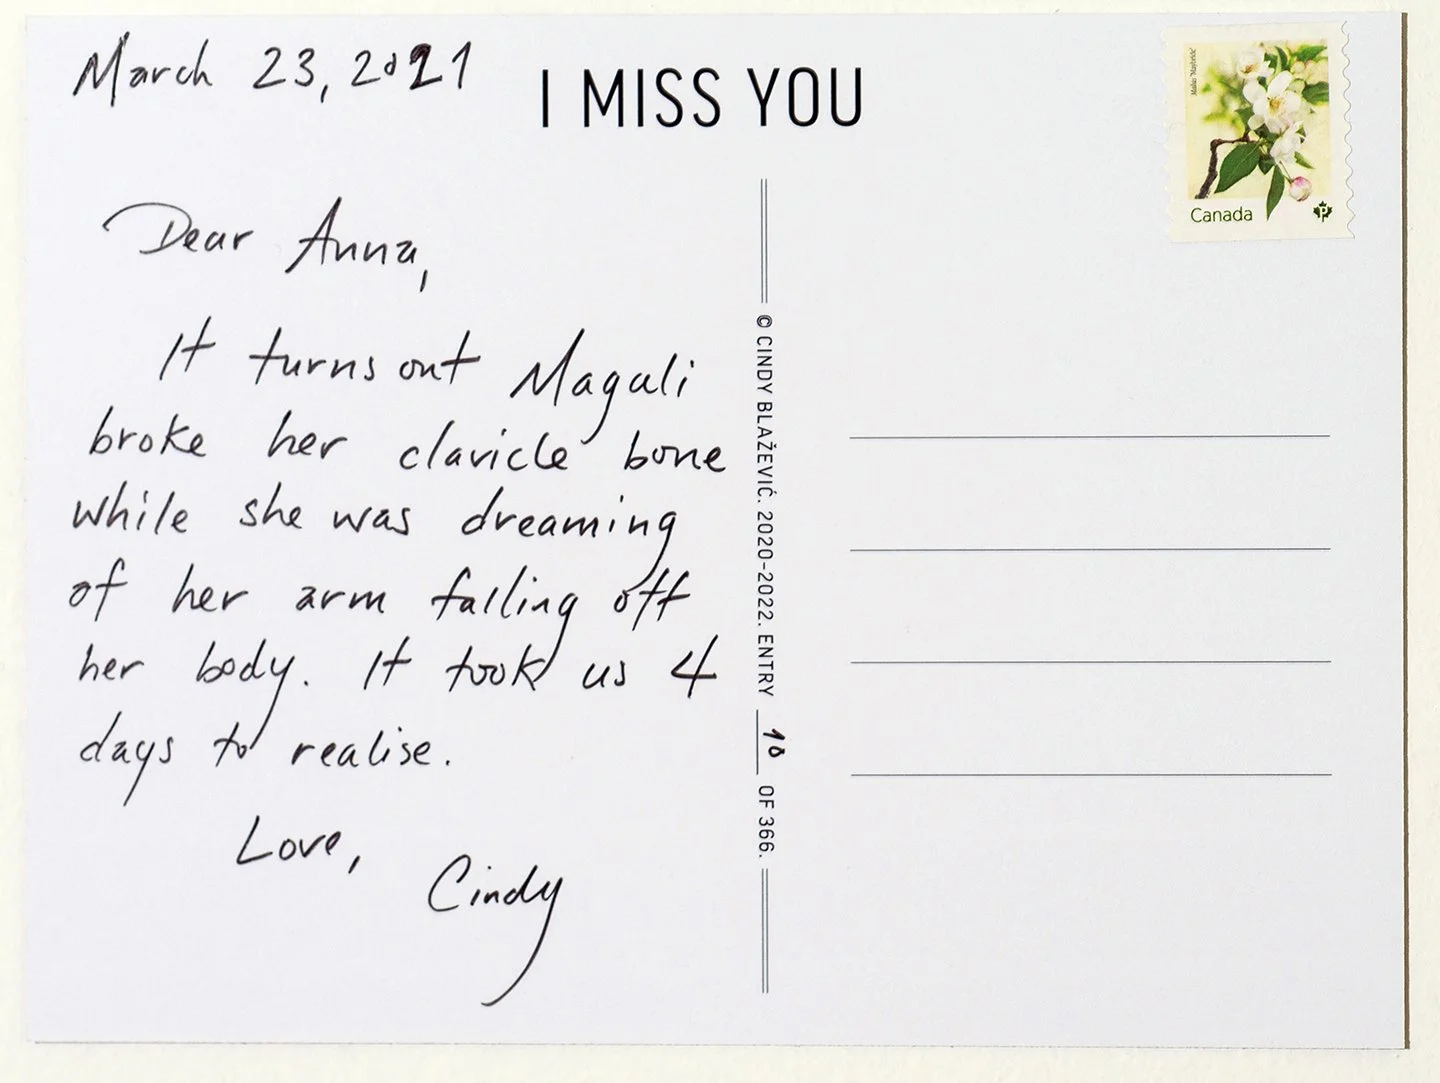 March 23, 2021
I MISS YOU
Dear Anna,
It turns out Magali
broke her clavicle bone
while she was dreaming
of her arm falling off
her body. It took us 4
days to realise.
Love,
Cindy
© CINDY BLAŽEVIĆ. 2020-2022. ENTRY 18 OF 366.
Canada
P